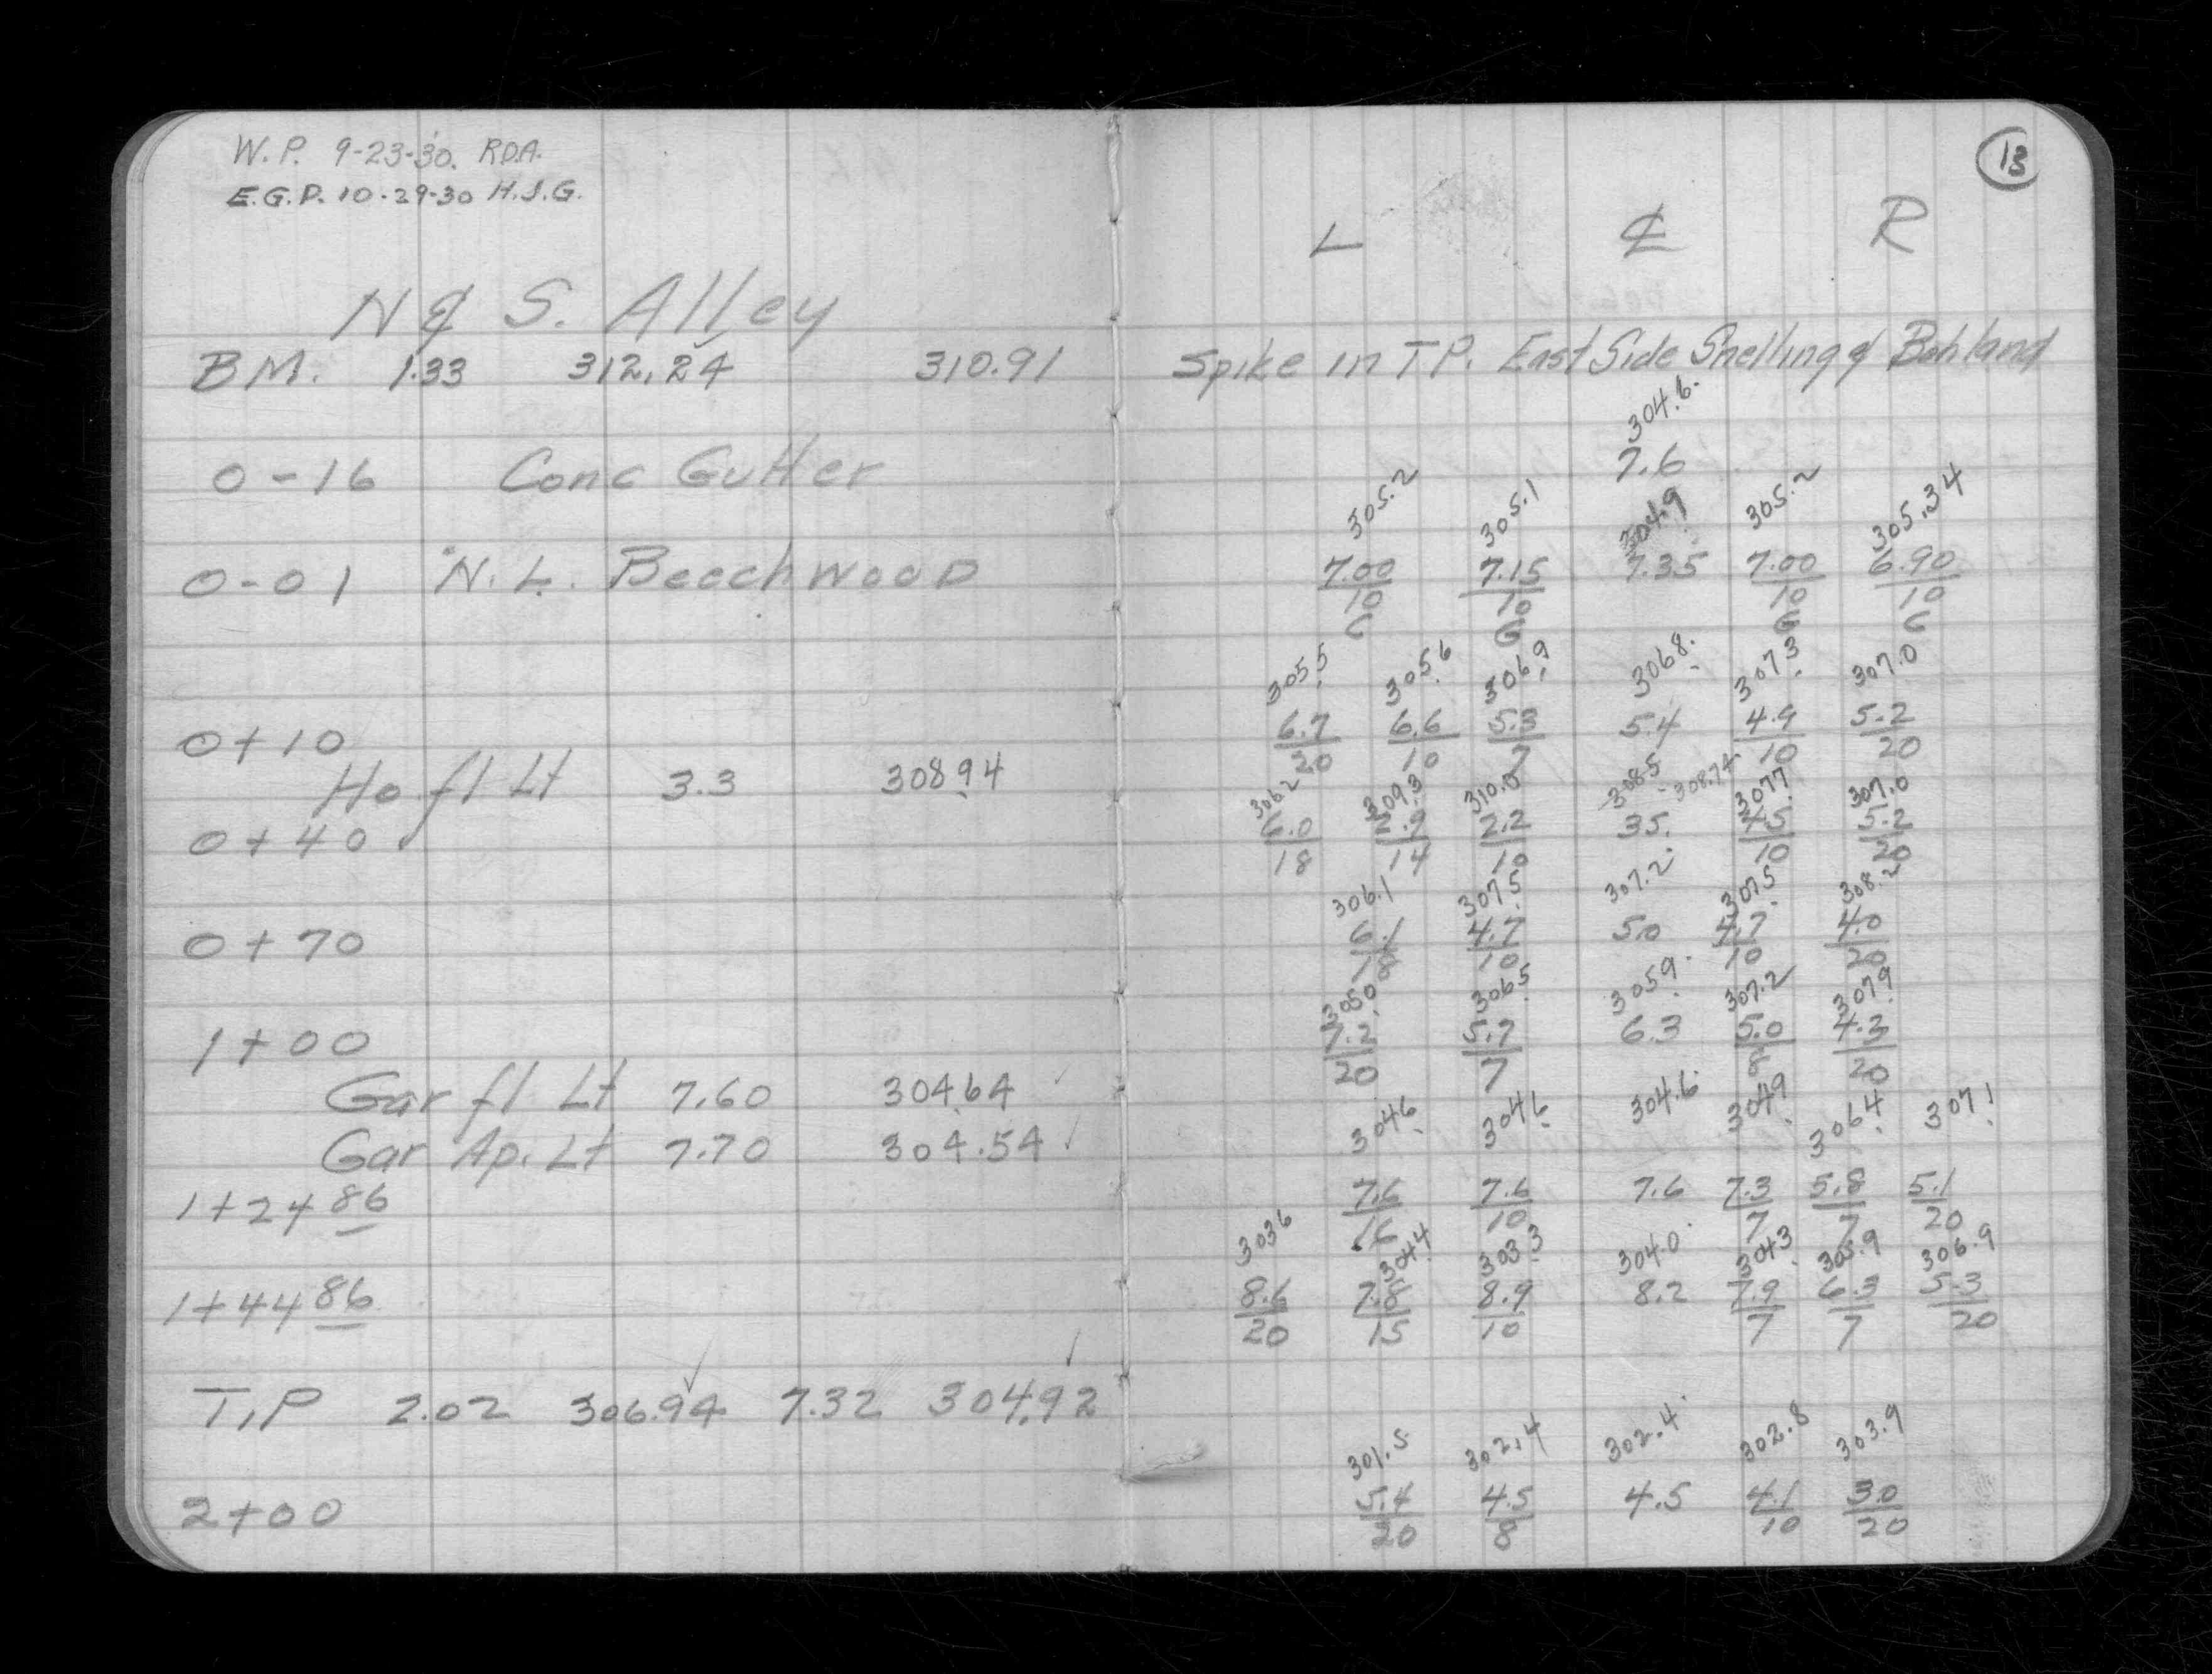 W.P. 9-23-30. R.D.A.
E.G.P. 10-29-30 H.J.G.
13
L ℄ R
N & S. Alley
BM. 1.33 312.24 310.91 Spike in TP. East Side Snelling & Bohland
304.6
0-16 Conc Gutter 7.6
305.2 305.1 304.9 305.2 305.34
0-01 N.L. Beechwood 7.00 7.15 7.35 7.00 6.90
10 10 10 10
6 6 6 6
305.5 305.6 306.9 306.8 307.3 307.0
0+10 6.7 6.6 5.3 5.4 4.9 5.2
20 10 7 10 20
Ho fl Lt 3.3 308.94
306.2 309.3 310.0 308.5 - 308.74 307.7 307.0
0+40 6.0 2.9 2.2 3.5 4.5 5.2
18 14 10 10 20
306.1 307.5 307.2 307.5 308.2
0+70 6.1 4.7 5.0 4.7 4.0
18 10 10 20
305.0 306.5 305.9 307.2 307.9
1+00 7.2 5.7 6.3 5.0 4.3
20 7 8 20
Gar fl Lt 7.60 304.64 ✓
304.6 304.6 304.6 304.9 306.4 307.1
Gar Ap. Lt 7.70 304.54 ✓
1+24 86 7.6 7.6 7.6 7.3 5.8 5.1
16 10 7 7 20
303.6 304.4 303.3 304.0 304.3 305.9 306.9
1+44 86 8.6 7.8 8.9 8.2 7.9 6.3 5.3
20 15 10 7 7 20
T.P 2.02 306.94 7.32 304.92
301.5 302.4 302.4 302.8 303.9
2+00 5.4 4.5 4.5 4.1 3.0
20 8 10 20